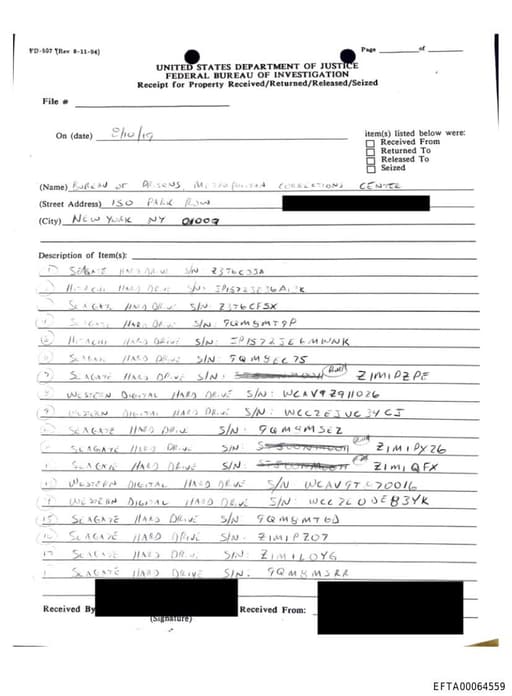 FD-597 (Rev 8-11-94)
Page ____ of ____
UNITED STATES DEPARTMENT OF JUSTICE
FEDERAL BUREAU OF INVESTIGATION
Receipt for Property Received/Returned/Released/Seized
File #
On (date) 8/10/19
item(s) listed below were:
Received From
Returned To
Released To
Seized
(Name) BUREAU OF PRISONS, METROPOLITAN CORRECTIONS CENTER
(Street Address) 150 PARK ROW
(City) NEW YORK NY
Description of Item(s):
1 SEAGATE HARD DRIVE S/N
HITACHI HARD DRIVE S/N:
SEAGATE HARD DRIVE S/N: Z3T6CFSX
4 SEAGATE HARD DRIVE S/N: 9QM8MT9P
5 HITACHI HARD DRIVE S/N:
6 SEAGATE HARD DRIVE S/N: 9QM8EC75
7 SEAGATE HARD DRIVE S/N: Z1M1PZPE
8 WESTERN DIGITAL HARD DRIVE S/N: WCAV9Z911026
9 WESTERN DIGITAL HARD DRIVE S/N: WCC2EJUC34CJ
SEAGATE HARD DRIVE S/N: 9QM8MSEZ
SEAGATE HARD DRIVE S/N: Z1M1PY26
SEAGATE HARD DRIVE S/N: Z1M1QFX
13 WESTERN DIGITAL HARD DRIVE S/N
WESTERN DIGITAL HARD DRIVE S/N:
15 SEAGATE HARD DRIVE S/N 9QM8MT6D
16 SEAGATE HARD DRIVE S/N. Z1M1PZ07
17 SEAGATE HARD DRIVE S/N: Z1M1LOYG
SEAGATE HARD DRIVE S/N. 9QM8MSRR
Received By
(Signature)
Received From:
EFTA00064559